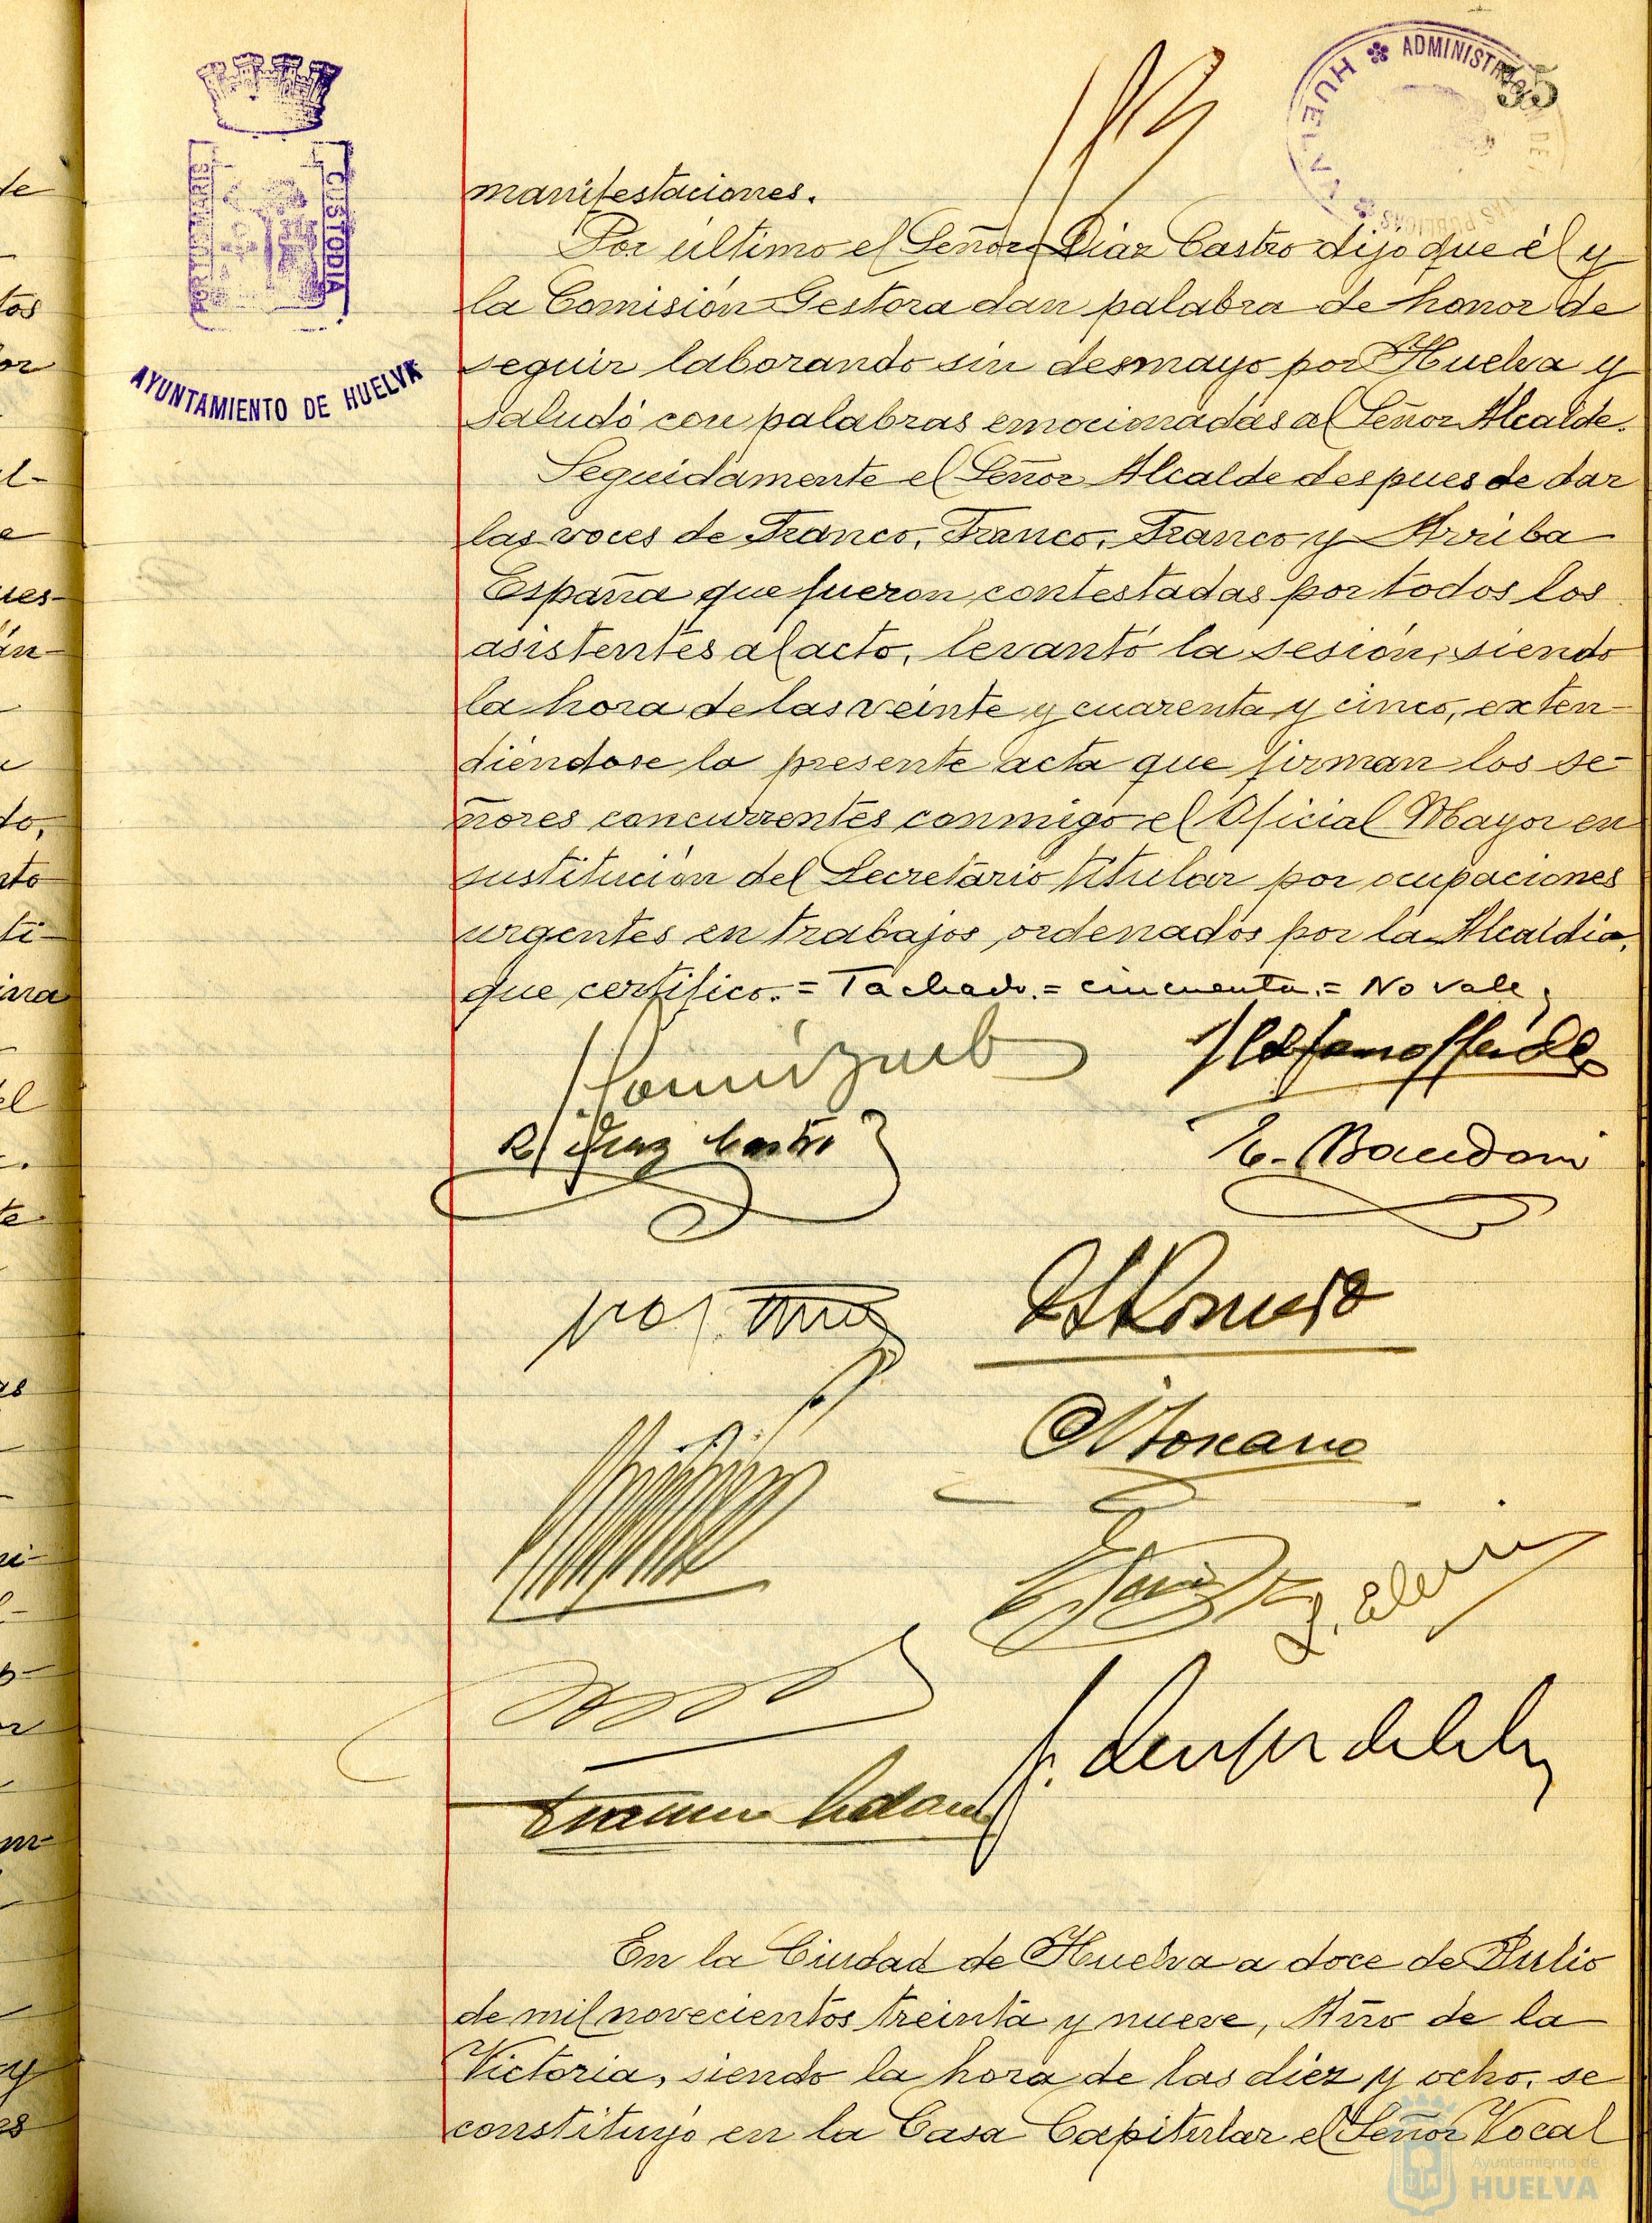 55
ADMINISTRACIÓN DE
HUELVA
PORTUS MARIS
CUSTODIA
AYUNTAMIENTO DE HUELVA
manifestaciones.
Por último el Señor Diaz Castro dijo que él y
la Comisión Gestora dan palabra de honor de
seguir laborando sin desmayo por Huelva y
saludó con palabras emocionadas al Señor Alcalde.
Seguidamente el Señor Alcalde despues de dar
las voces de Franco, Franco, Franco y Arriba
España que fueron contestadas por todos los
asistentes al acto, levantó la sesión, siendo
la hora de las veinte y cuarenta y cinco, exten-
diéndose la presente acta que firman los se-
ñores concurrentes conmigo el Oficial Mayor en
sustitución del Secretario titular por ocupaciones
urgentes en trabajos ordenados por la Alcaldia,
que certifico.= Tachado.= cincuenta.= No vale.
R. Diaz Castro
E. Baudoni
Romero
En la Ciudad de Huelva a doce de Julio
de mil novecientos treinta y nueve, Año de la
Victoria, siendo la hora de las diez y ocho, se
constituyó en la Casa Capitular el Señor Vocal
Ayuntamiento de
HUELVA